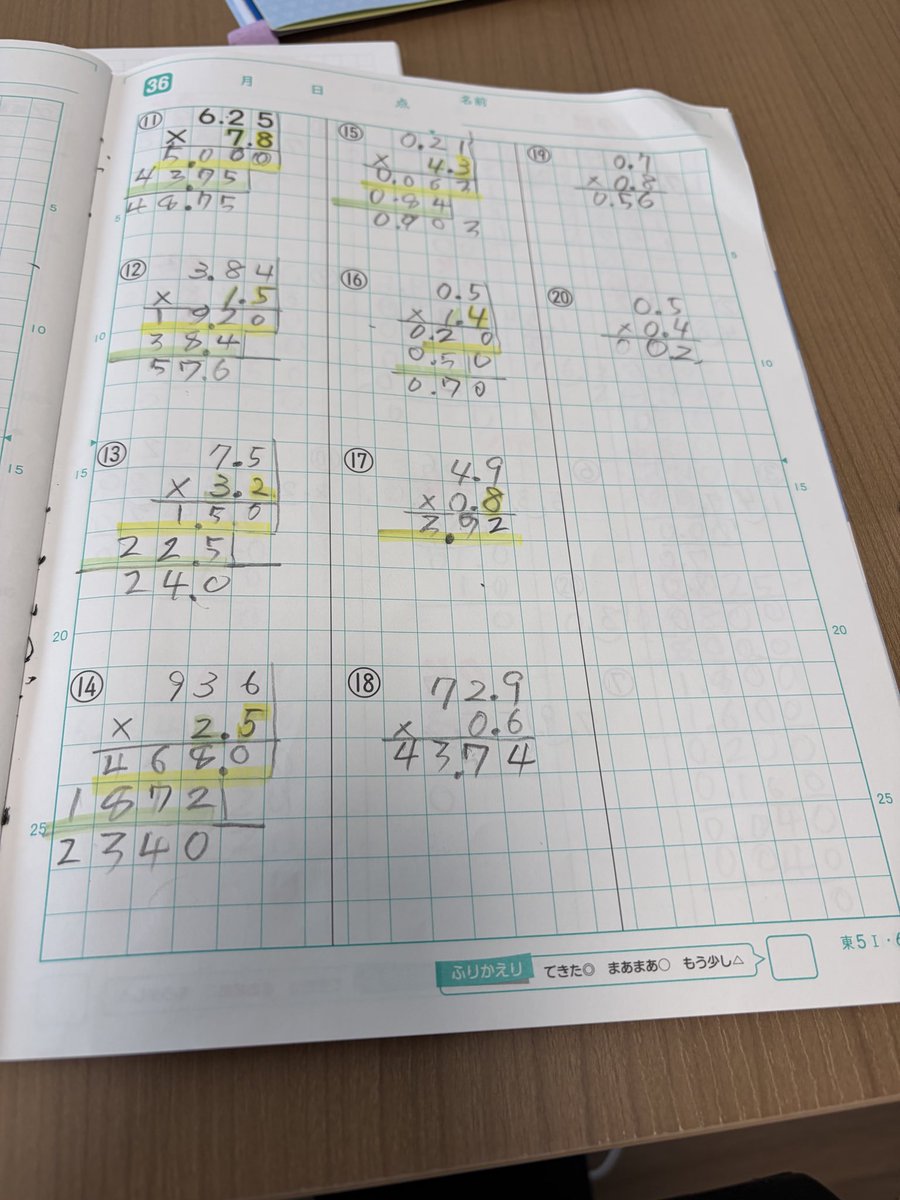 36 月 日 点 名前
⑪ 6.25
× 7.8
5.000
43.75
48.75
⑫ 3.84
× 1.5
1920
38.4
57.6
⑬ 7.5
× 3.2
1.50
22.5
24.0
⑭ 936
× 2.5
468.0
1872
2340
⑮ 0.21
× 4.3
0.063
0.84
0.903
⑯ 0.5
× 1.4
0.20
0.50
0.70
⑰ 4.9
× 0.8
3.92
⑱ 72.9
× 0.6
43.74
⑲ 0.7
× 0.8
0.56
⑳ 0.5
× 0.4
002
5
10
15
20
25
5
10
15
20
25
5
10
15
ふりかえり てきた◎ まあまあ○ もう少し△
東5Ⅰ・6